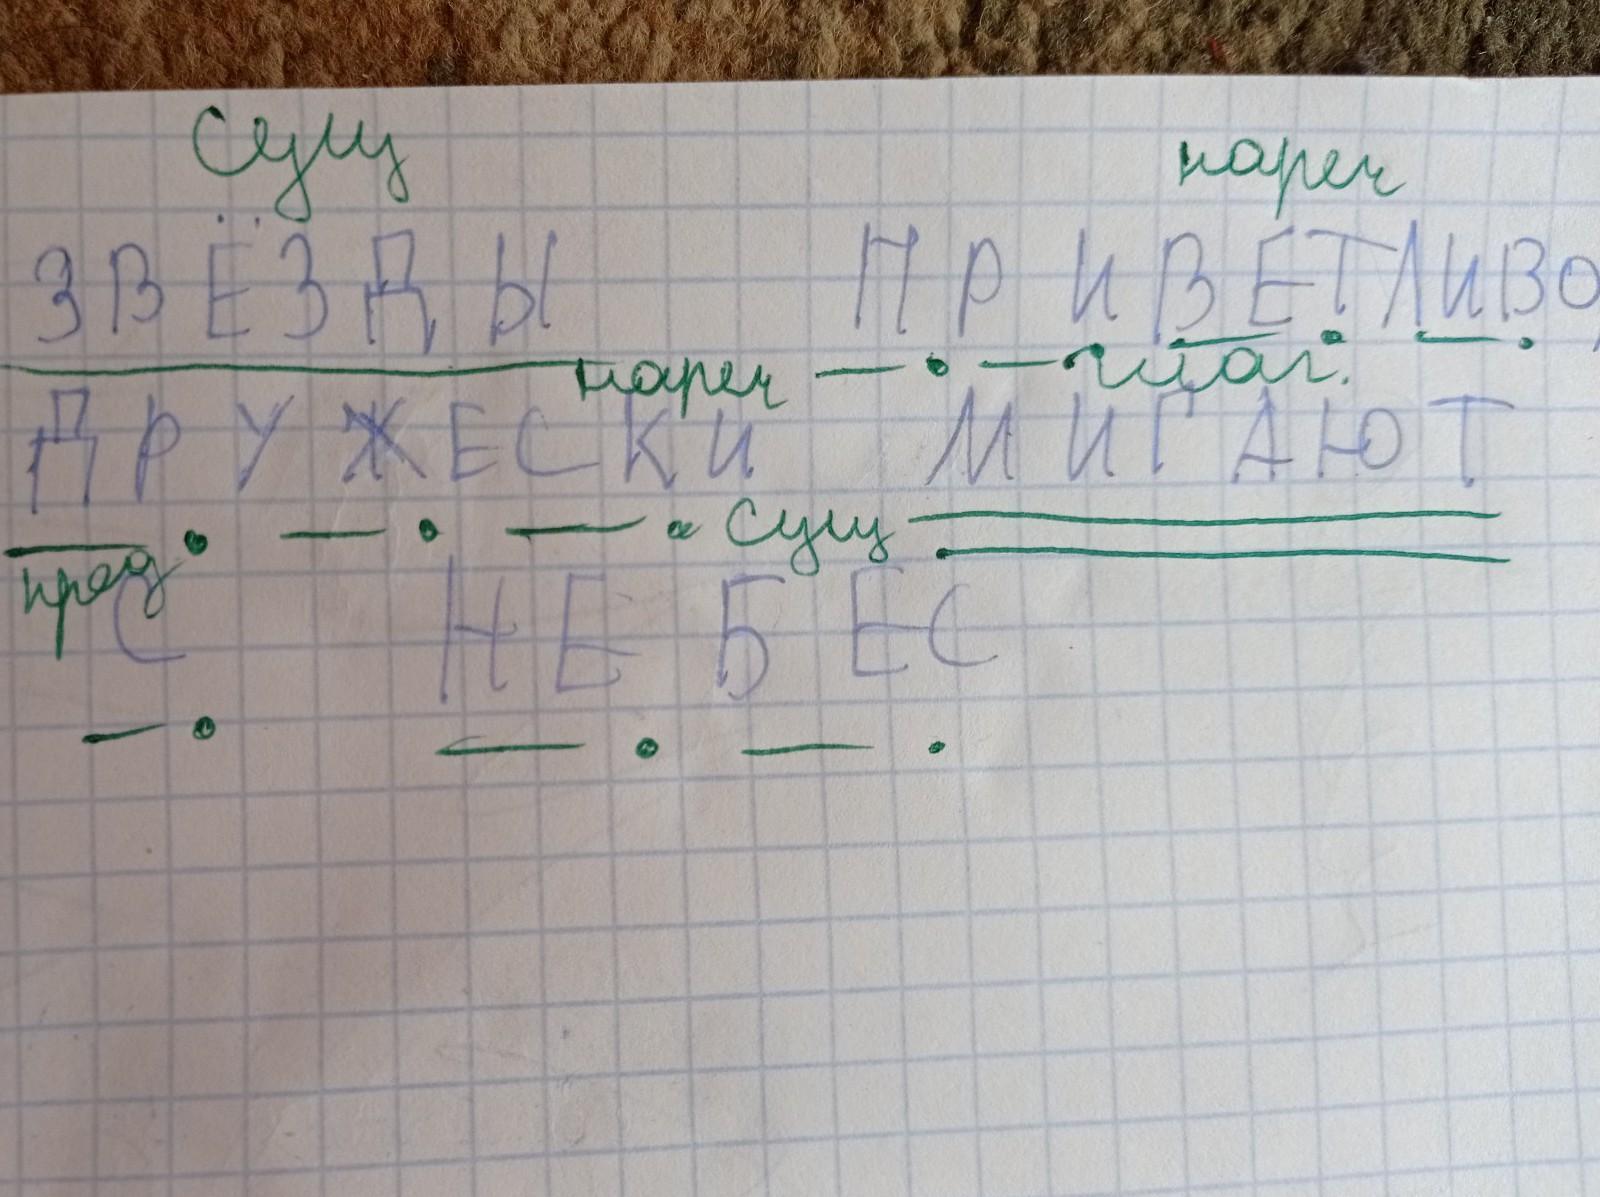 сущ нареч
ЗВЁЗДЫ ПРИВЕТЛИВО,
нареч глаг.
ДРУЖЕСКИ МИГАЮТ
пред сущ
С НЕБЕС